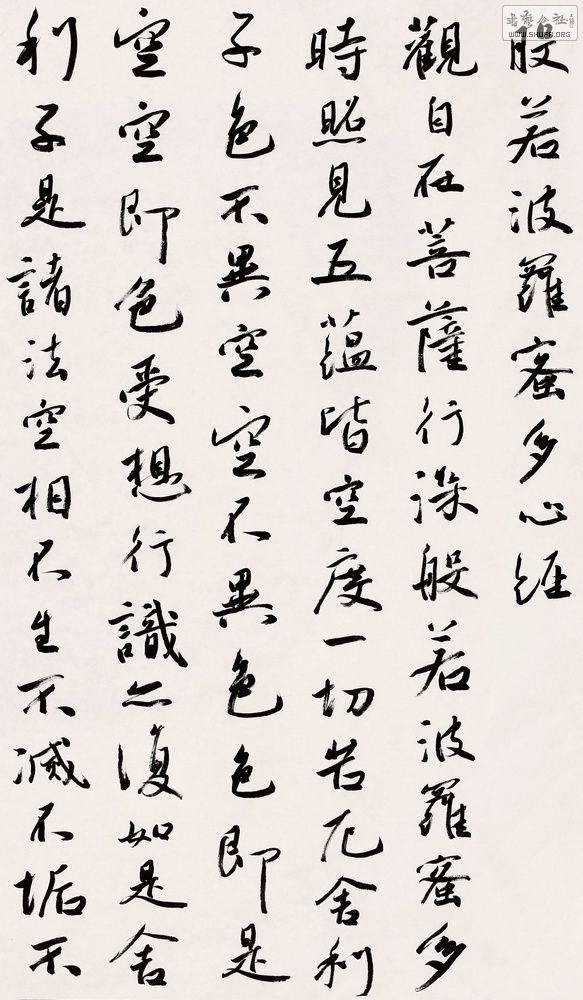 般若波羅蜜多心經
觀自在菩薩行深般若波羅蜜多
時照見五蘊皆空度一切苦厄舍利
子色不異空空不異色色即是
空空即色受想行識亦復如是舍
利子是諸法空相不生不滅不垢不
書藝公社
WWW.SHUFA.ORG